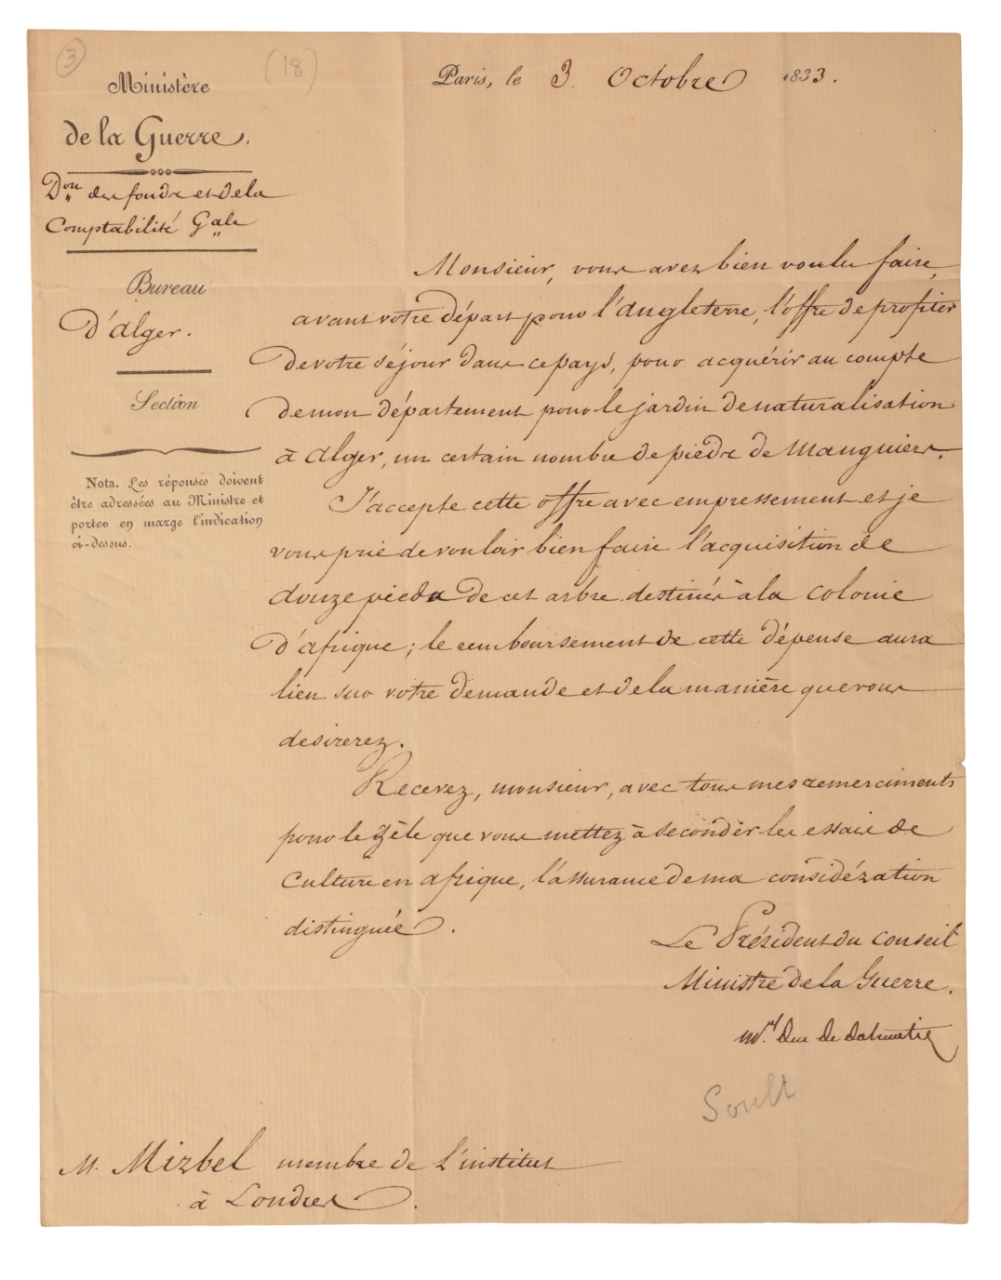 3
(18)
Ministère
de la Guerre.
Don des fonds et de la
Comptabilité Gale
Bureau
d'alger.
Section
Nota. Les réponses doivent
être adressées au Ministre et
porter en marge l'indication
ci-dessus.
Paris, le 3 Octobre 1833.
Monsieur, vous avez bien voulu faire,
avant votre départ pour l'Angleterre, l'offre de profiter
de votre séjour dans ce pays, pour acquérir au compte
de mon département pour le jardin de naturalisation
à Alger, un certain nombre de pieds de Manguiers.
J'accepte cette offre avec empressement et je
vous prie de vouloir bien faire l'acquisition de
douze pieds de cet arbre destinés à la colonie
d'afrique ; le remboursement de cette dépense aura
lieu sur votre demande et de la manière que vous
desirerez.
Recevez, monsieur, avec tous mes remerciments
pour le zèle que vous mettez à seconder les essais de
Culture en afrique, l'assurance de ma considération
distinguée.
Le Président du Conseil
Ministre de la Guerre.
Mal Duc de Dalmatie
Soult
M. Mirbel membre de L'institut
à Londres.